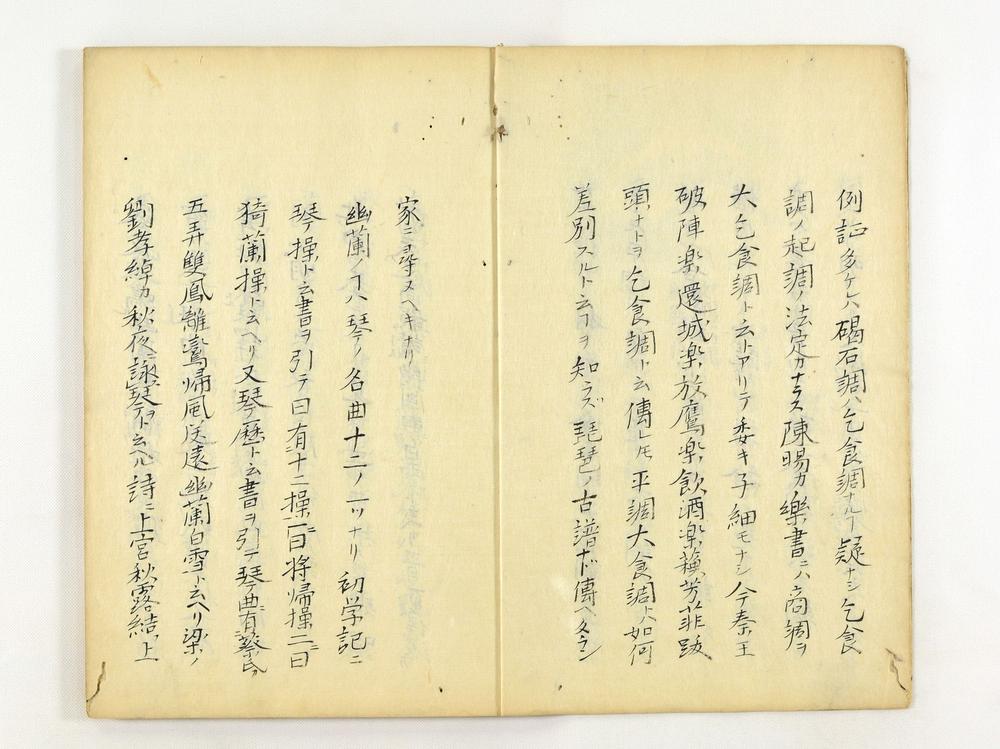 例証多ケレハ碣石調ハ乞食調ナルヿ疑ナシ乞食
調ノ起調ノ法定カナラス陳暘カ樂書ニハ商調ヲ
大乞食調ト云トアリテ委キ子細モナシ今秦王
破陣楽還城楽放鷹楽飲酒楽蘓芳菲跋
頭ナトヲ乞食調ト云傳レモ平調大食調トハ如何
差別スルト云フヿヲ知ラズ琵琶ノ古譜ナド傳ヘタラン
家ニ尋ヌヘキナリ
幽蘭ノヿハ琴ノ名曲十二ノ一ツナリ初学記ニ
琴操ト云書ヲ引テ曰有十二操一曰将帰操二曰
猗蘭操ト云ヘリ又琴歴ト云書ヲ引テ琴曲有蔡氏
五弄雙鳳離鸞帰風送遠幽蘭白雪ト云ヘリ梁ノ
劉孝綽カ秋夜詠琴ヲト云ヘル詩ニ上宮秋露結上